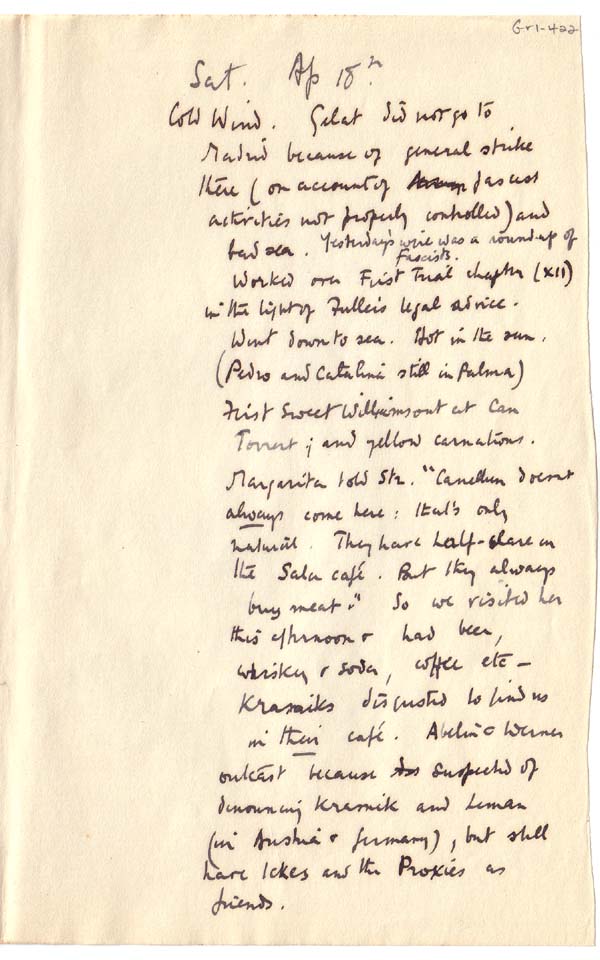 Gr1-422
Sat. Ap 18th.
Cold Wind. Gelat did not go to
Madrid because of general strike
there (on account of fascist
activities not properly controlled) and
bad sea. Yesterday's wire was a roundup of
Fascists.
Worked over First Trial chapter (XII)
in the light of Fuller's legal advice.
Went down to sea. Hot in the sun.
(Pedro and Catalina still in Palma)
First Sweet Williams out at Can
Torrent; and yellow carnations.
Margarita told Str. "Canellun doesnt
always come here: that's only
natural. They have half-share in
the Sala café. But they always
buy meat." So we visited her
this afternoon & had beer,
whiskey & soda, coffee etc –
Krasniks disgusted to find us
in their café. Abelin & Werner
outcast because suspected of
denouncing Krasnik and Leman
(in Austria & Germany), but still
have Ickes and the Proxies as
friends.